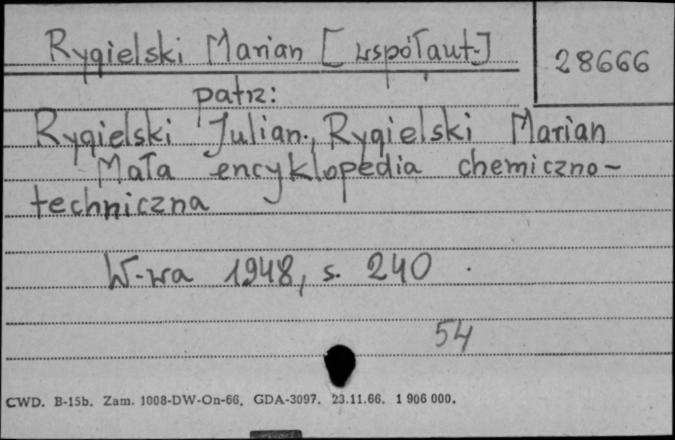 Rygielski Marian [współaut.]
28666
patrz:
Rygielski Julian, Rygielski Marian
Mała encyklopedia chemiczno-
techniczna
W-wa 1948, s. 240.
54
CWD. B-15b. Zam. 1008-DW-On-66. GDA-3097. 23.11.66. 1 906 000.